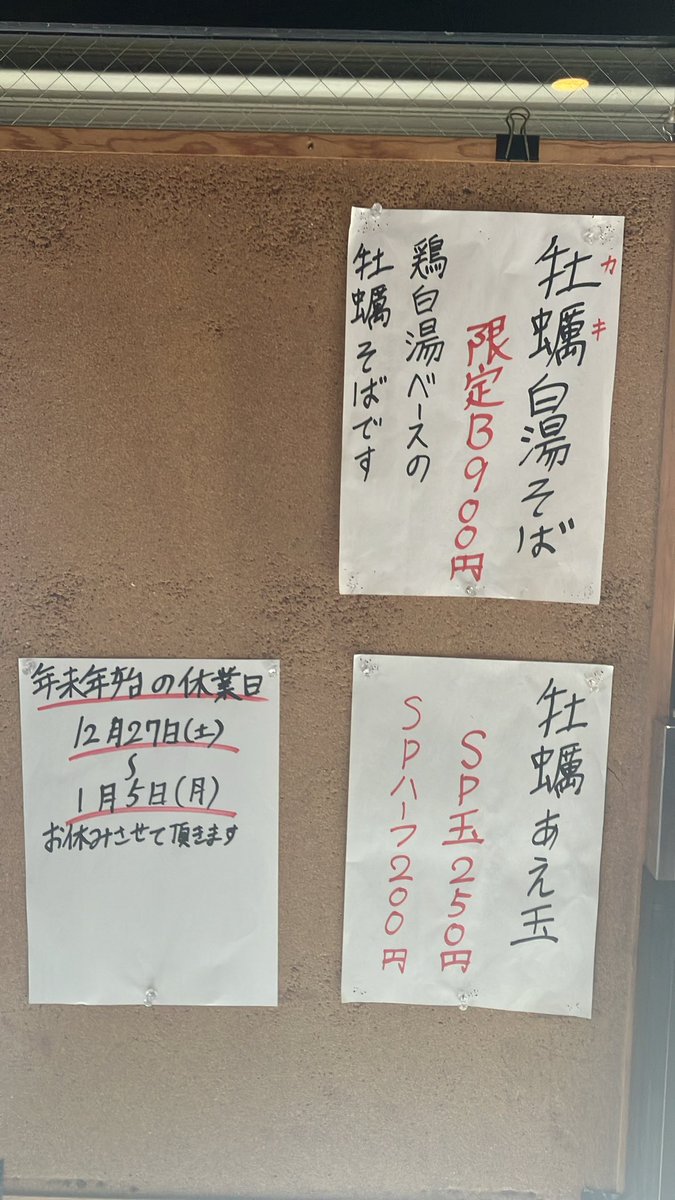 牡蠣白湯そば
カキ
限定B900円
鶏白湯ベースの
牡蠣そばです
牡蠣あえ玉
SP玉250円
SPハーフ200円
年末年始の休業日
12月27日(土)
〜
1月5日(月)
お休みさせて頂きます